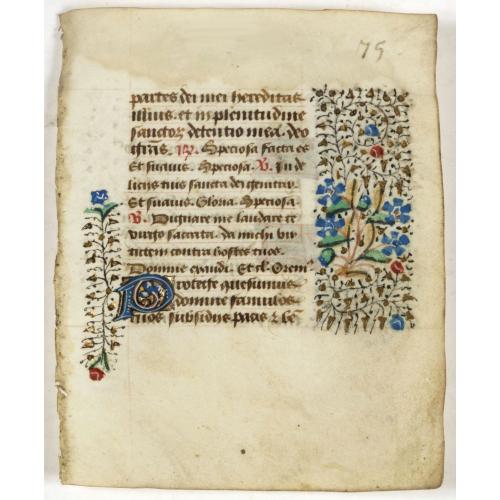 75
partes dei mei hereditas
illius. et in plenitudine
sanctoꝝ detentio mea. deo
gr̄as. ꝶ. Speciosa facta es
Et suauis. Speciosa. ℣. In de
liciis tuis sancta dei genitrix
Et suauis. Gloria. Speciosa.
℣. Dignare me laudare te
virgo sacrata. da michi vir
tutem contra hostes tuos.
Domine exaudi. Et cl. Orem̄
Protege quesumus
domine famulos
tuos subsidiis pacis et be